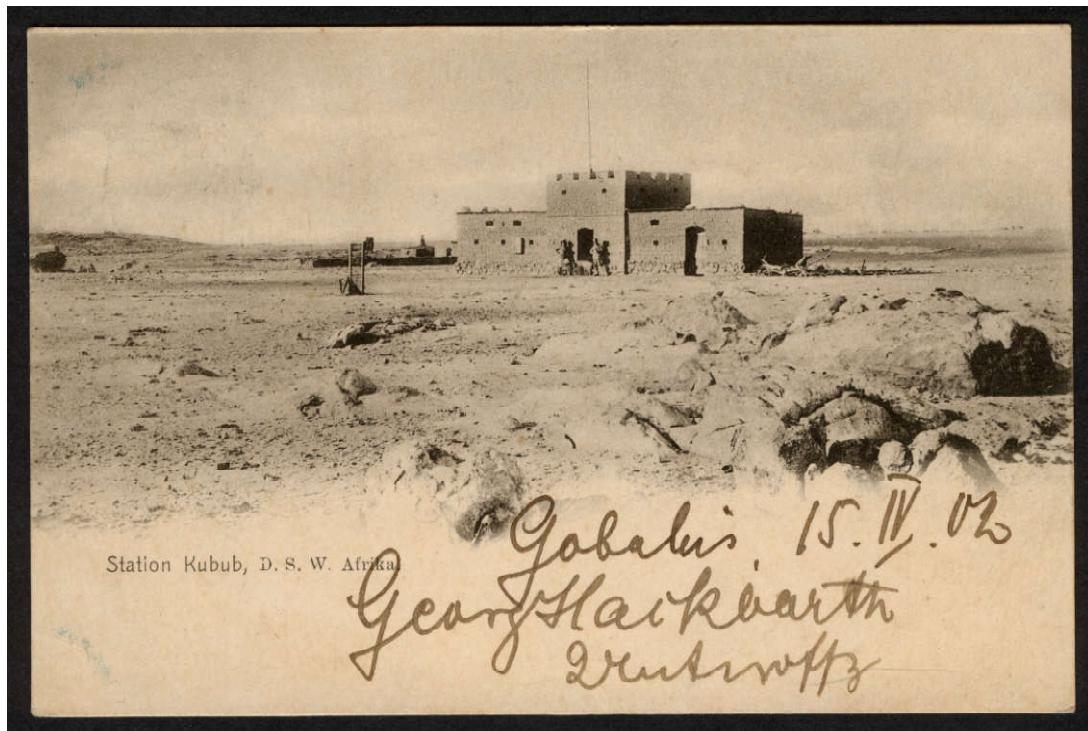 Station Kubub, D. S. W. Afrika.
Gobabis, 15. IV. 02
Georg Hackbarth